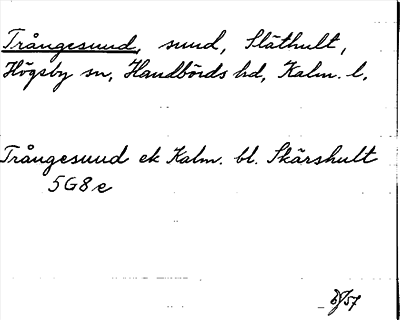 Trångesund, sund, Släthult,
Högsby sn, Handbörds hd, Kalm. l.
Trångesund ek Kalm. bl. Skärshult
5G8e
/57